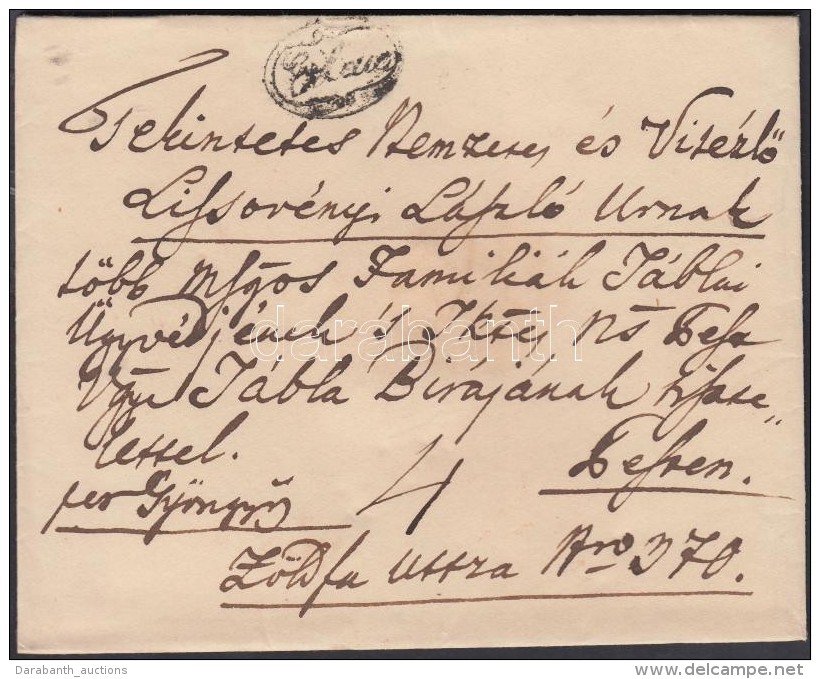 Tekintetes Nemzetes és Vitézlő
Lissovényi László Urnak
több Mságos Familiák Táblai
Ügyvédjének s Tktes Ns Pest
Vgye Tábla Birájának tisste„
lettel.
Pesten.
per Gyöngyös
4
Zöldfa Uttza Nro 370.
darabanth
Darabanth_auctions
www.delcampe.net